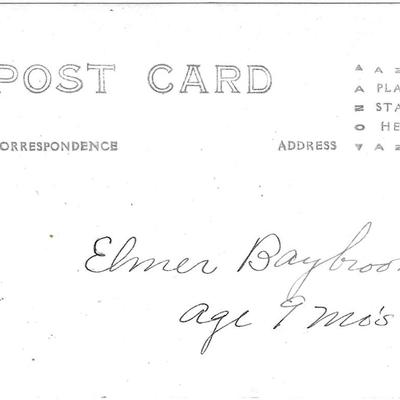 POST CARD
CORRESPONDENCE
ADDRESS
PLA
STA
HE
Elmer Baybroo
age 9 mo's